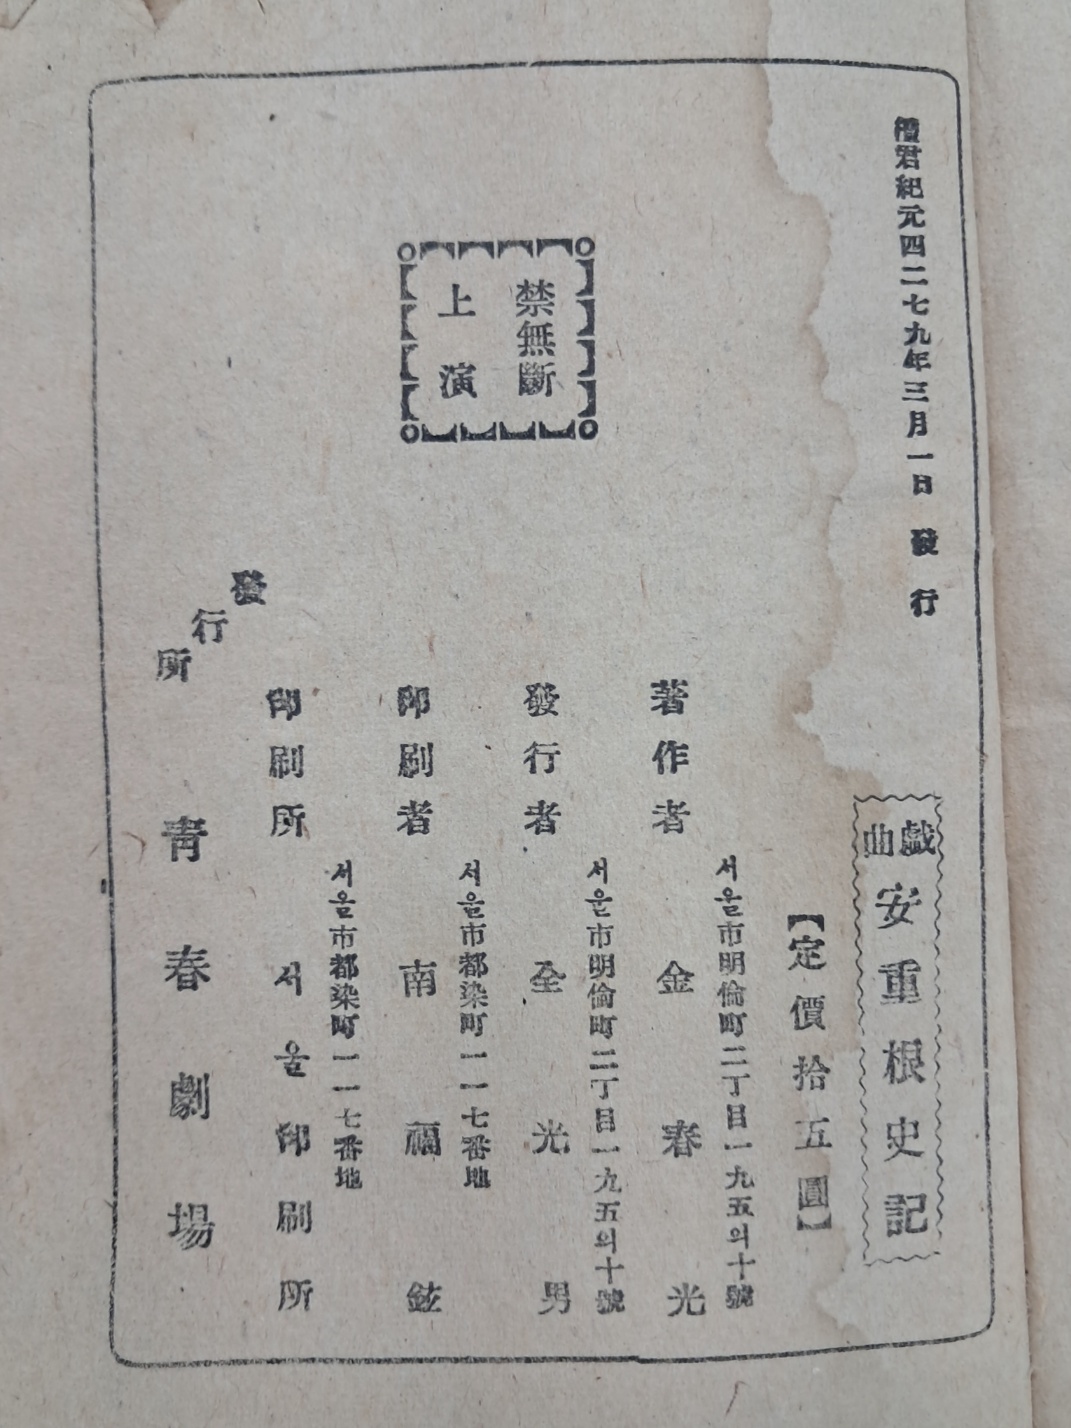 檀君紀元四二七九年三月一日 發行
戱曲 安重根史記
【定價拾五圓】
禁無斷
上演
서울市明倫町二丁目一九五의十號
著作者 金春光
서울市明倫町二丁目一九五의十號
發行者 全光男
서울市都染町一一七番地
印刷者 南福鉉
서울市都染町一一七番地
印刷所 서울印刷所
發行所 靑春劇場